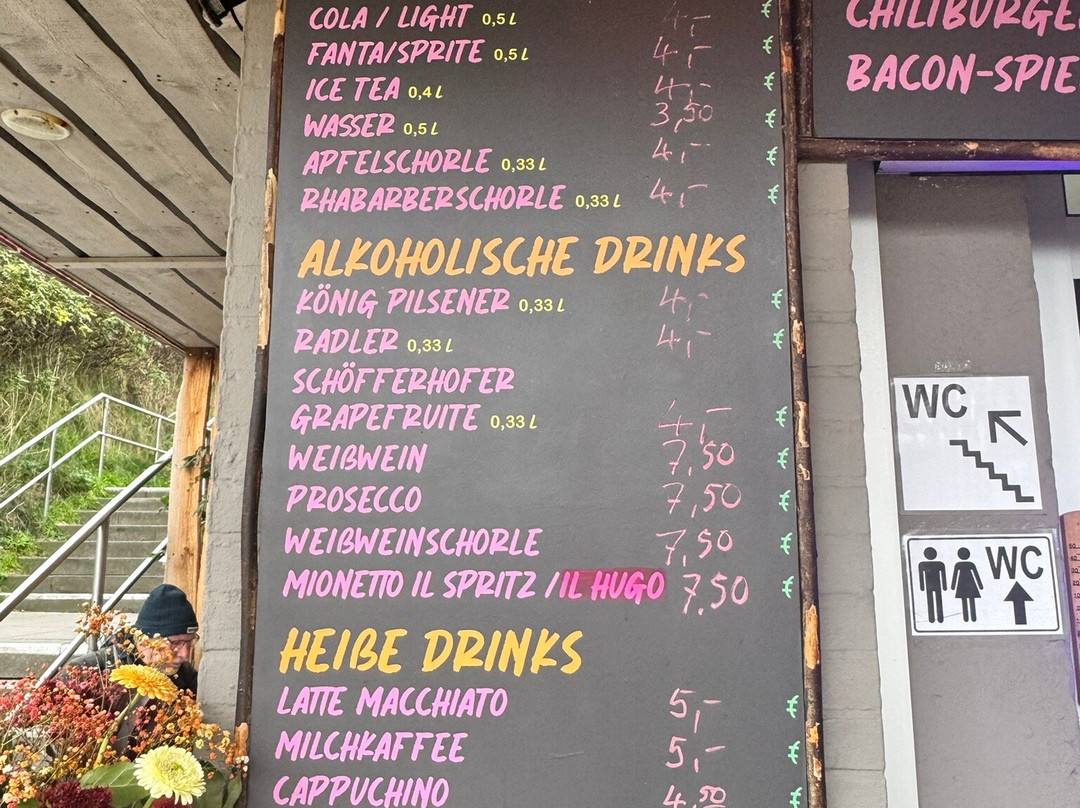 COLA / LIGHT 0,5 L 4,- €
FANTA/SPRITE 0,5 L 4,- €
ICE TEA 0,4 L 4,- €
WASSER 0,5 L 3,50 €
APFELSCHORLE 0,33 L 4,- €
RHABARBERSCHORLE 0,33 L 4,- €
ALKOHOLISCHE DRINKS
KÖNIG PILSENER 0,33 L 4,- €
RADLER 0,33 L 4,- €
SCHÖFFERHOFER
GRAPEFRUITE 0,33 L 4,- €
WEIßWEIN 7,50 €
PROSECCO 7,50 €
WEIßWEINSCHORLE 7,50 €
MIONETTO IL SPRITZ / IL HUGO 7.50 €
HEIßE DRINKS
LATTE MACCHIATO 5,- €
MILCHKAFFEE 5,- €
CAPPUCHINO 4,50 €
CHILIBURGE
BACON-SPIE
WC
WC